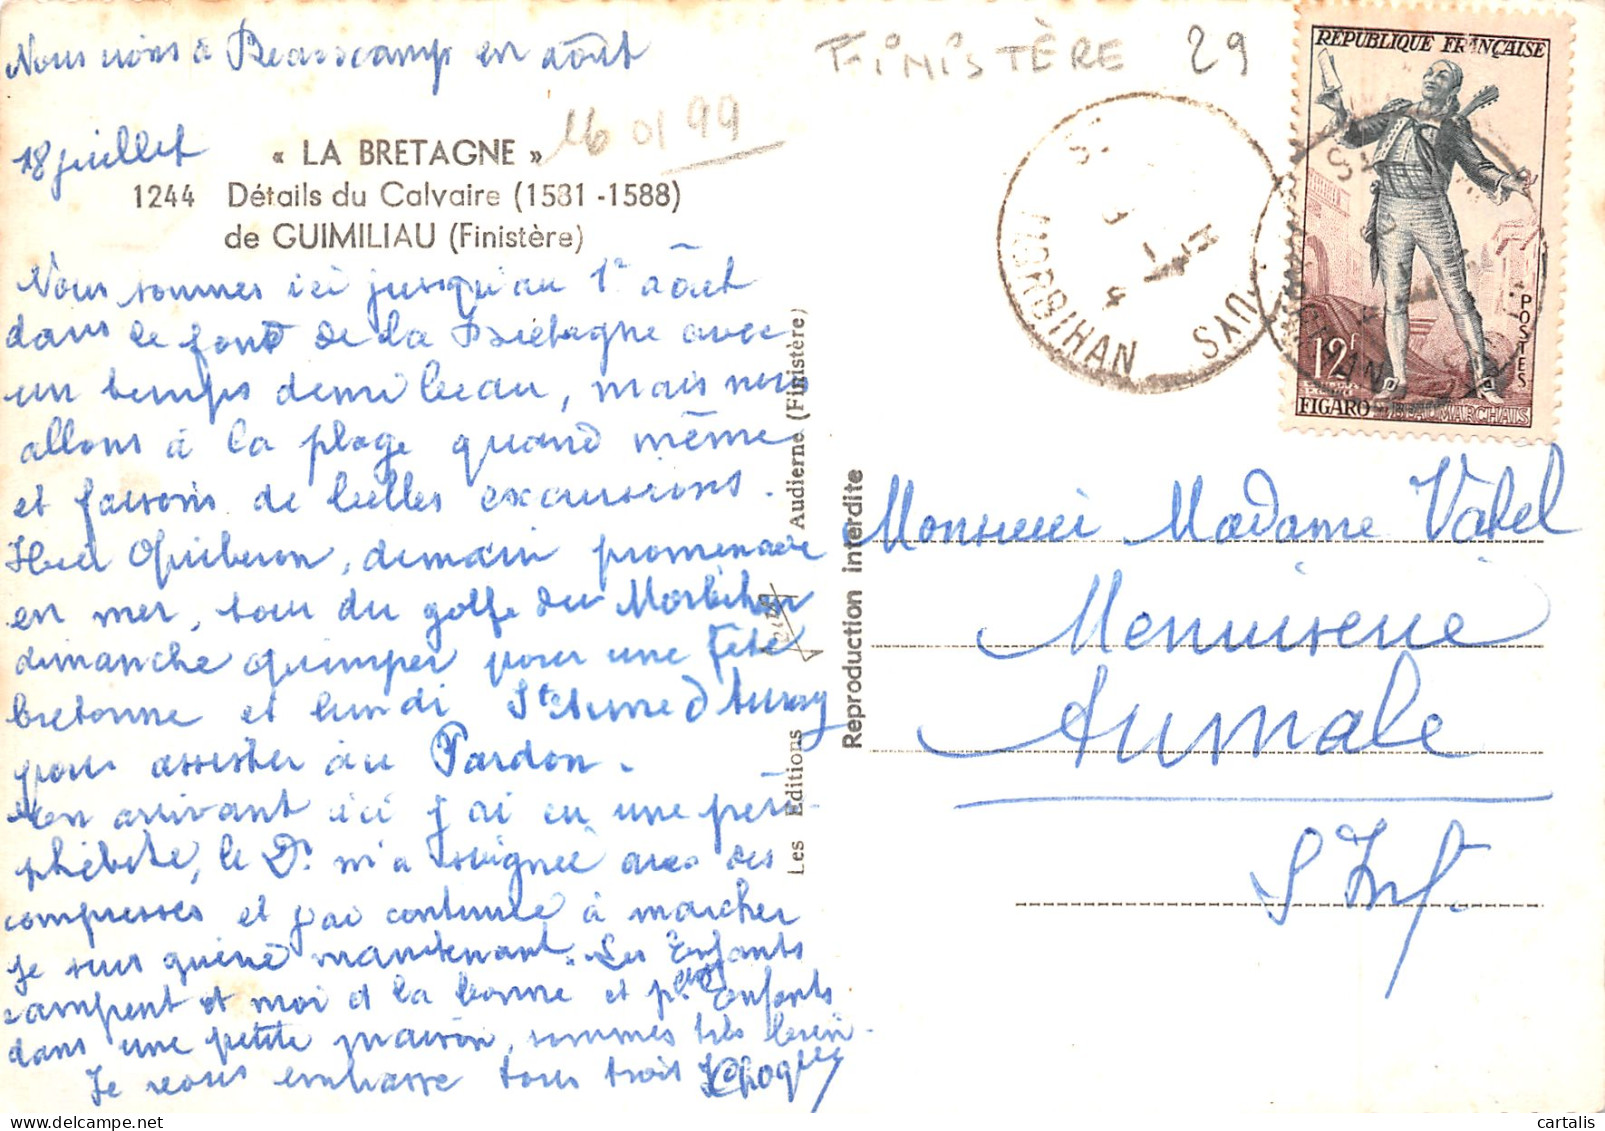 Nous irons à Beauscamp en août
FINISTÈRE 29
16 01 99
18 juillet
« LA BRETAGNE »
1244 Détails du Calvaire (1581 - 1588)
de GUIMILIAU (Finistère)
Nous sommes ici jusqu'au 1er août
dans le fond de la Bretagne avec
un temps demi beau, mais nous
allons à la plage quand même
et faisons de belles excursions.
Hier Quiberon, demain promenade
en mer, tour du golfe du Morbihan
dimanche Quimper pour une fête
bretonne et lundi Ste Anne d'Auray
pour assister au Pardon.
En arrivant ici j'ai eu une péri-
phlébite, le Dr. m'a soignée avec des
compresses et j'ai continué à marcher
je suis guérie maintenant. Les Enfants
campent et moi et la bonne et pts Enfants
dans une petite maison, sommes très bien.
Je vous embrasse tous trois
Les Editions Audierne (Finistère)
Reproduction interdite
RÉPUBLIQUE FRANÇAISE
POSTES
12F
FIGARO DE BEAUMARCHAIS
MORBIHAN
Monsieur Madame Vatel
Menuiserie
Aumale
S. Inf.
cartalis